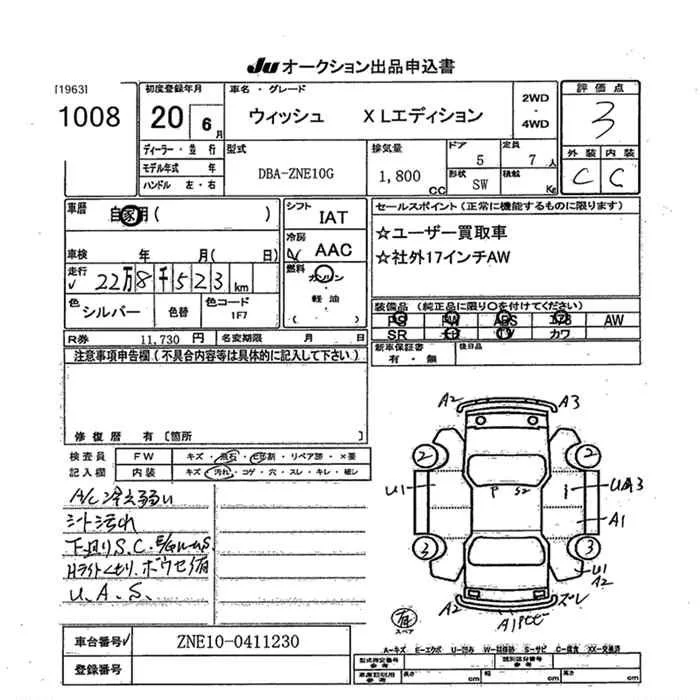 JU オークション出品申込書
[1963]
1008
初度登録年月
20 6月
車名・グレード
ウィッシュ XLエディション
2WD
・
4WD
評価点
3
ディーラー・並行
モデル年式 年
ハンドル 左・右
型式
DBA-ZNE10G
排気量
1,800 CC
ドア
5
定員
7 人
形状
SW
積載
Kg
外装 内装
C C
車歴
自家用 ( )
車検 年 月( 日)
走行
22万8千523km
色
シルバー
色替
色コード
1F7
シフト
IAT
冷房
AAC
燃料
ガソリン
・
軽油
( )
セールスポイント(正常に機能するものに限ります)
☆ユーザー買取車
☆社外17インチAW
装備品(純正品に限り○を付けてください)
PS PW ABS エアB AW
SR ナビ TV カワ
新車保証書
有・無
後日品
R券 11,730 円
名変期限 月 日
注意事項申告欄(不具合内容等は具体的に記入して下さい)
修復歴 有 [箇所 ]
検査員
記入欄
FW キズ・点石・ヒビ割・リペア跡・×要
内装 キズ・汚れ・コゲ・穴・スレ・キレ・破レ
A/C冷え弱い
シート汚れ
下廻りS.C.
Hライトくもり.
U.A.S.
A2 A3
2 2
U1 P S2 UA3
A1
3 3
U1
A2
A2 ズレ
有
スペア
A-キズ E-エクボ U-凹み W-補修跡 S-サビ C-腐食 XX-交換済
車台番号 ZNE10-0411230
登録番号
型式指定番号
参考
類別区分番号
参考
車庫証明用
参考
長さ cm
幅 cm
高さ cm